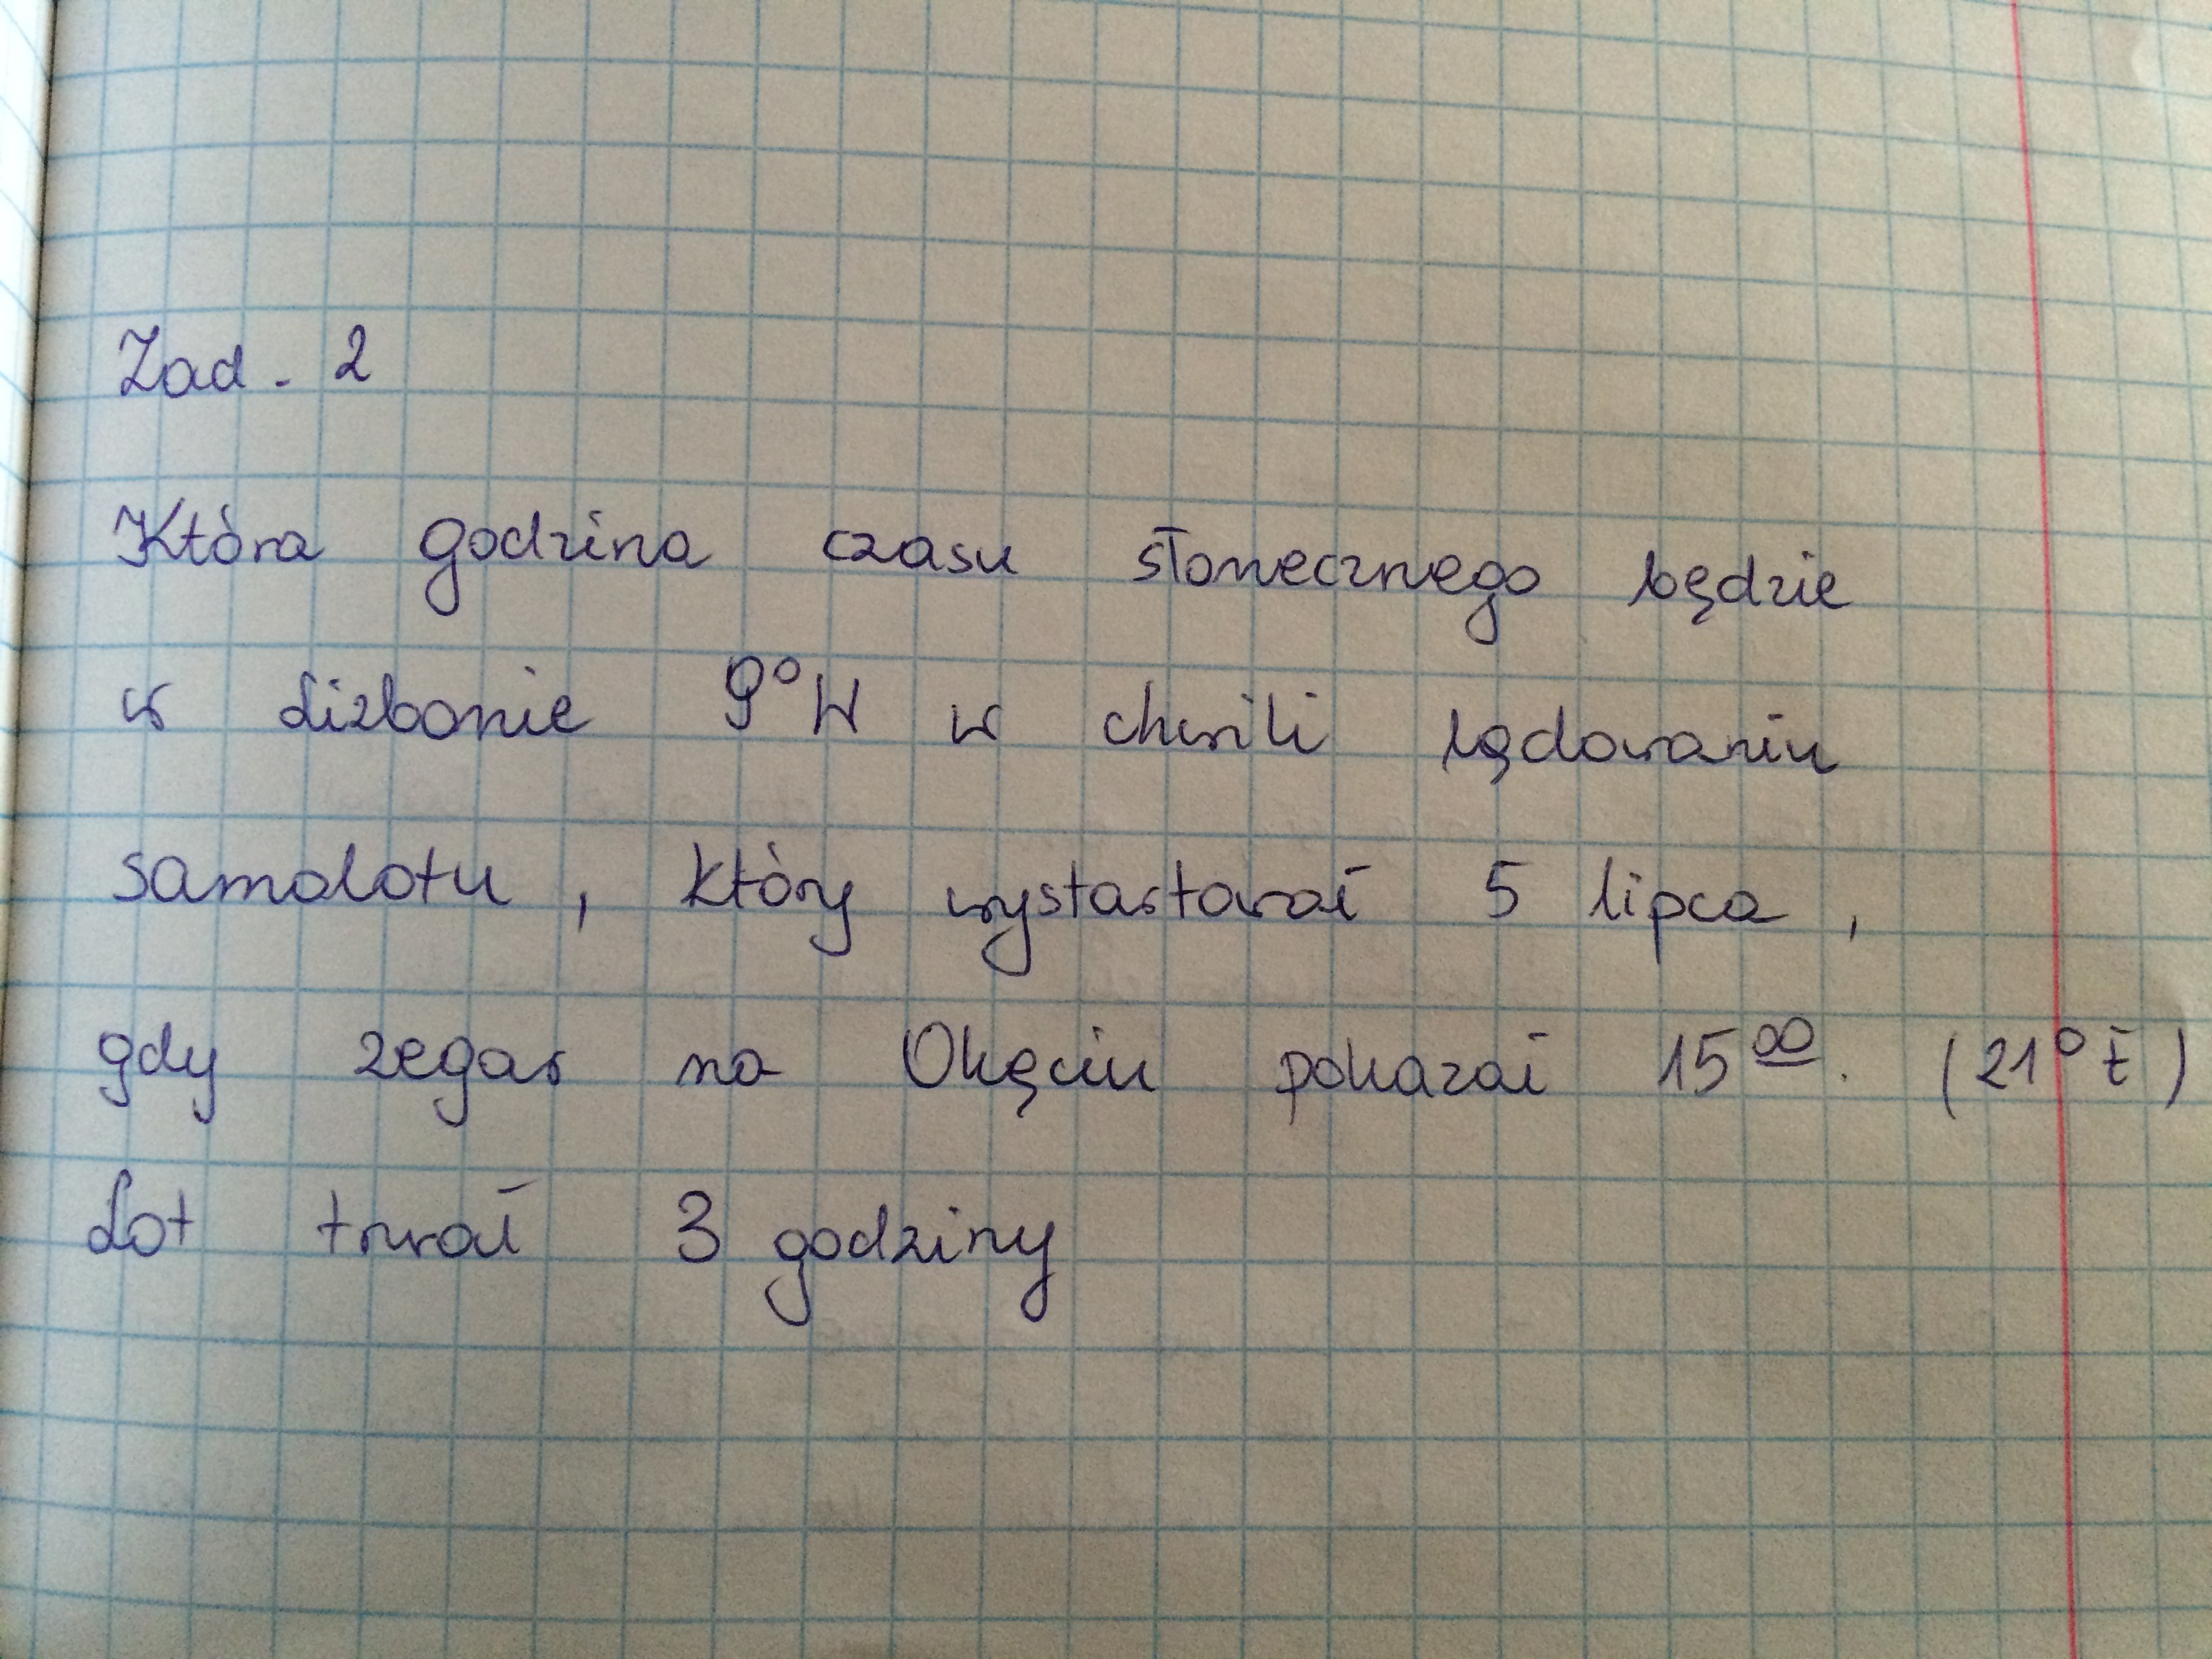 Zad. 2
Która godzina czasu słonecznego będzie
w Lizbonie 9°W w chwili lądowaniu
samolotu, który wystartował 5 lipca,
gdy zegar na Okęciu pokazał 15⁰⁰. (21°E)
Lot trwał 3 godziny